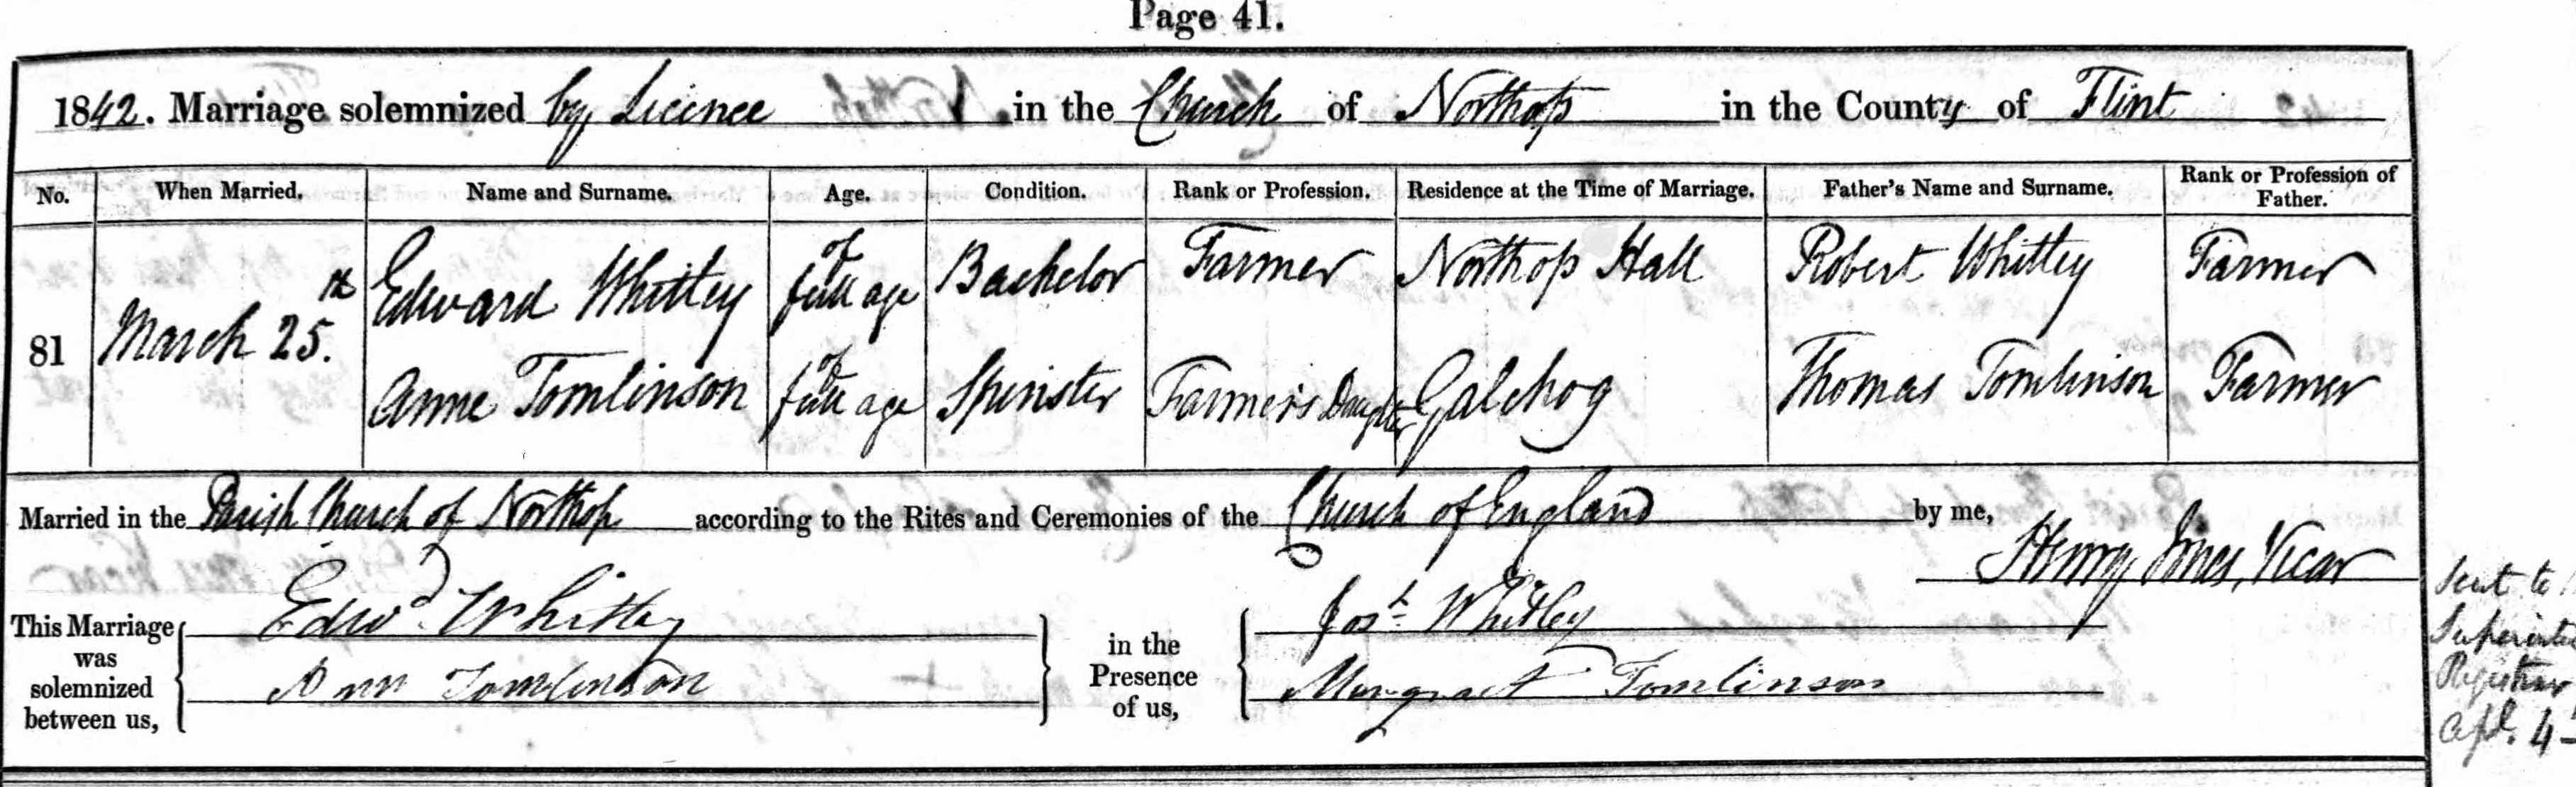 Page 41.
1842. Marriage solemnized by Licence in the Church of Northop in the County of Flint
No. When Married. Name and Surname. Age. Condition. Rank or Profession. Residence at the Time of Marriage. Father's Name and Surname. Rank or Profession of Father.
81 March 25th. Edward Whitley of full age Bachelor Farmer Northop Hall Robert Whitley Farmer
Anne Tomlinson of full age Spinster Farmer's Daughter Galchog Thomas Tomlinson Farmer
Married in the Parish Church of Northop according to the Rites and Ceremonies of the Church of England by me,
Henry Jones, Vicar
This Marriage was solemnized between us, Edwd Whitley in the Presence of us, Josh Whitley
Ann Tomlinson Margraet Tomlinson
Sent to
Registrar
Apl. 4